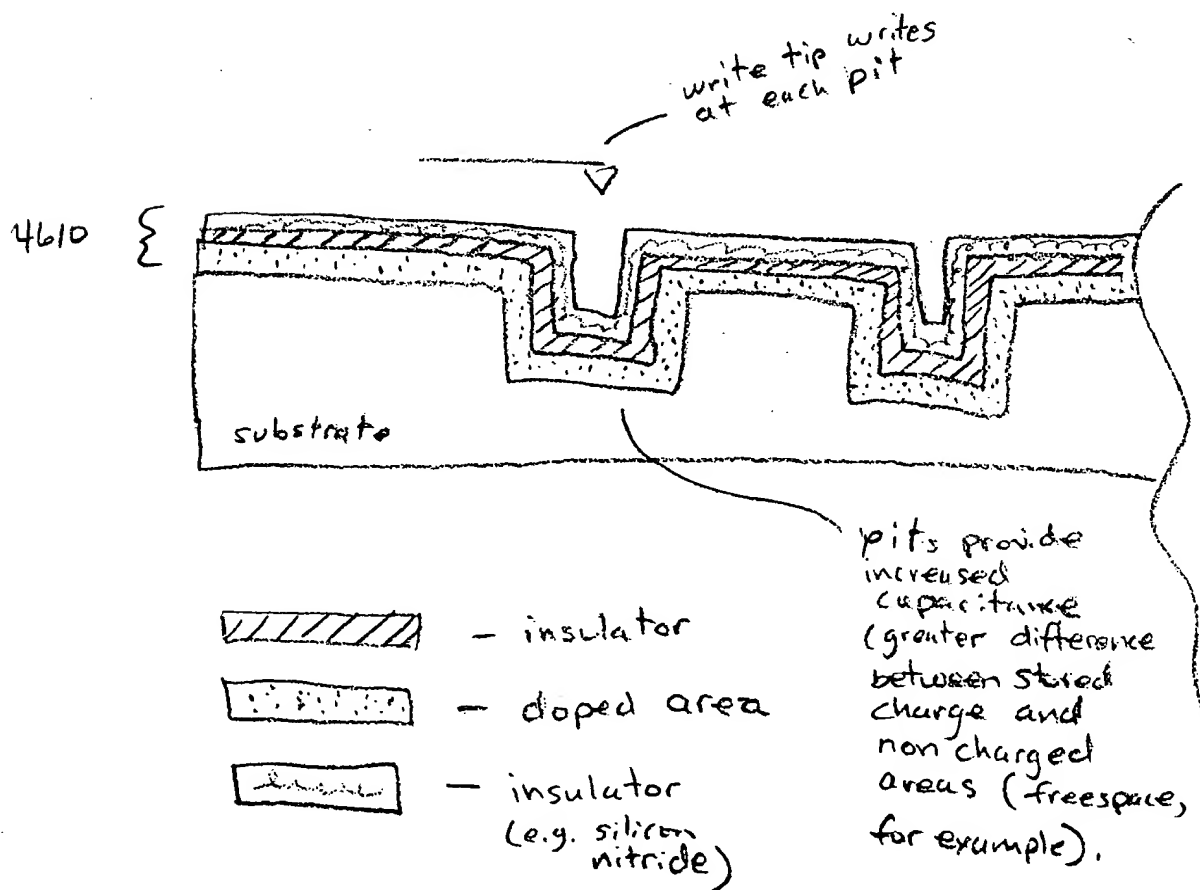 write tip writes
at each pit
4610
substrate
pits provide
increased
capacitance
(greater difference
between stored
charge and
non charged
areas (freespace,
for example).
– insulator
– doped area
– insulator
(e.g. silicon
nitride)